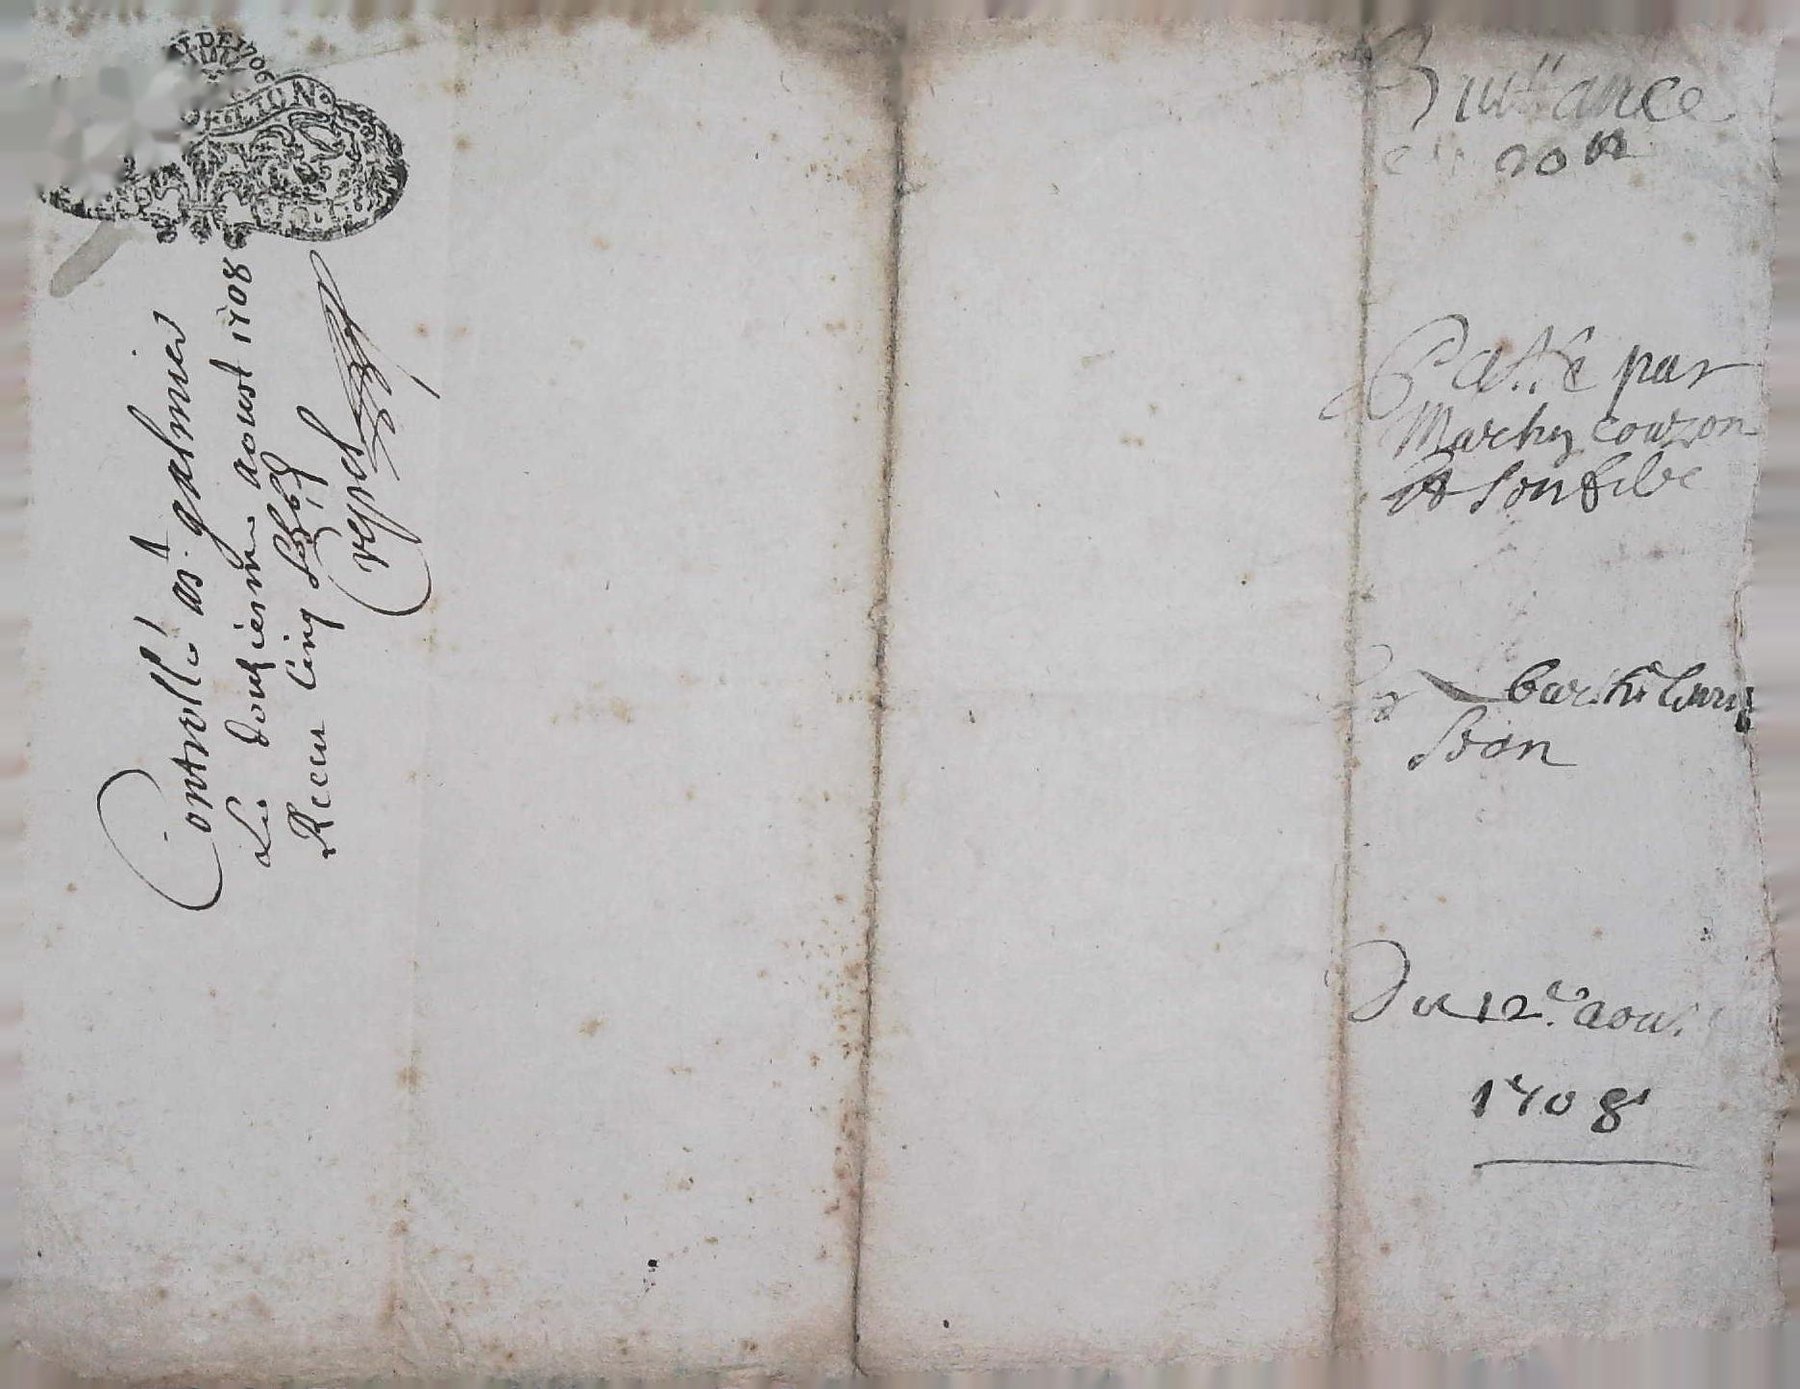 DE 1706
Controllé a st galmier
Le douzienme aoust 1708
Receu Cinq sols
Crespel
Quittance
20 ₶
Passé par
Marthy couzon
et son filz
barthe
Du 12e aou
1708